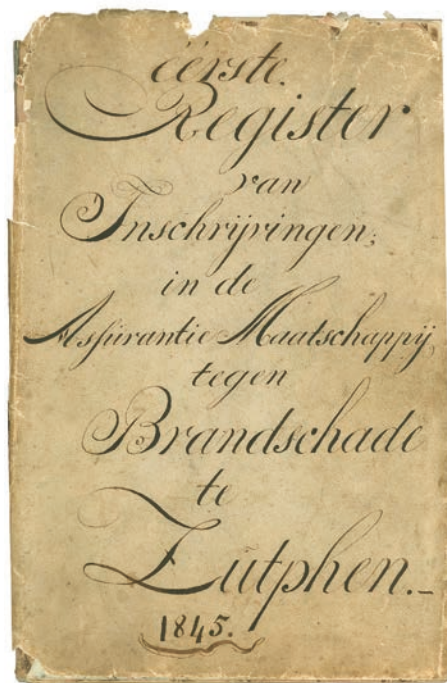 éérste.
Register
van
Inschrijvingen;
in de
Assurantie Maatschappij,
tegen
Brandschade
te
Zutphen.–
1845.